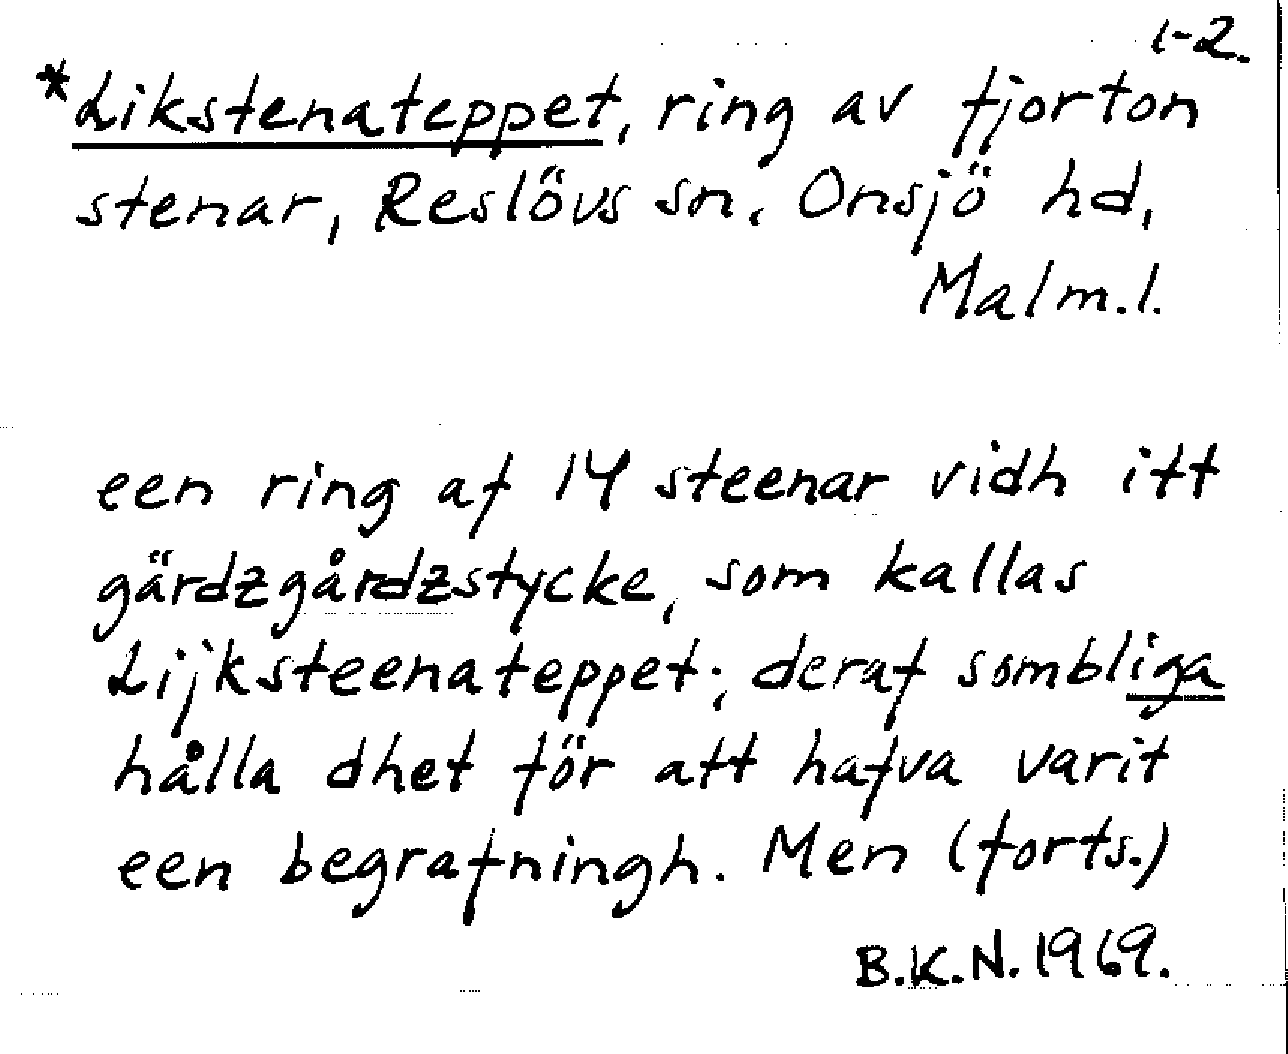 1-2.
*Likstenateppet, ring av fjorton
stenar, Reslövs sn, Onsjö hd,
Malm.l.
een ring af 14 steenar vidh itt
gärdzgårdzstycke, som kallas
Lijksteenateppet; deraf sombliga
hålla dhet för att hafva varit
een begrafningh. Men (forts.)
B.K.N. 1969.